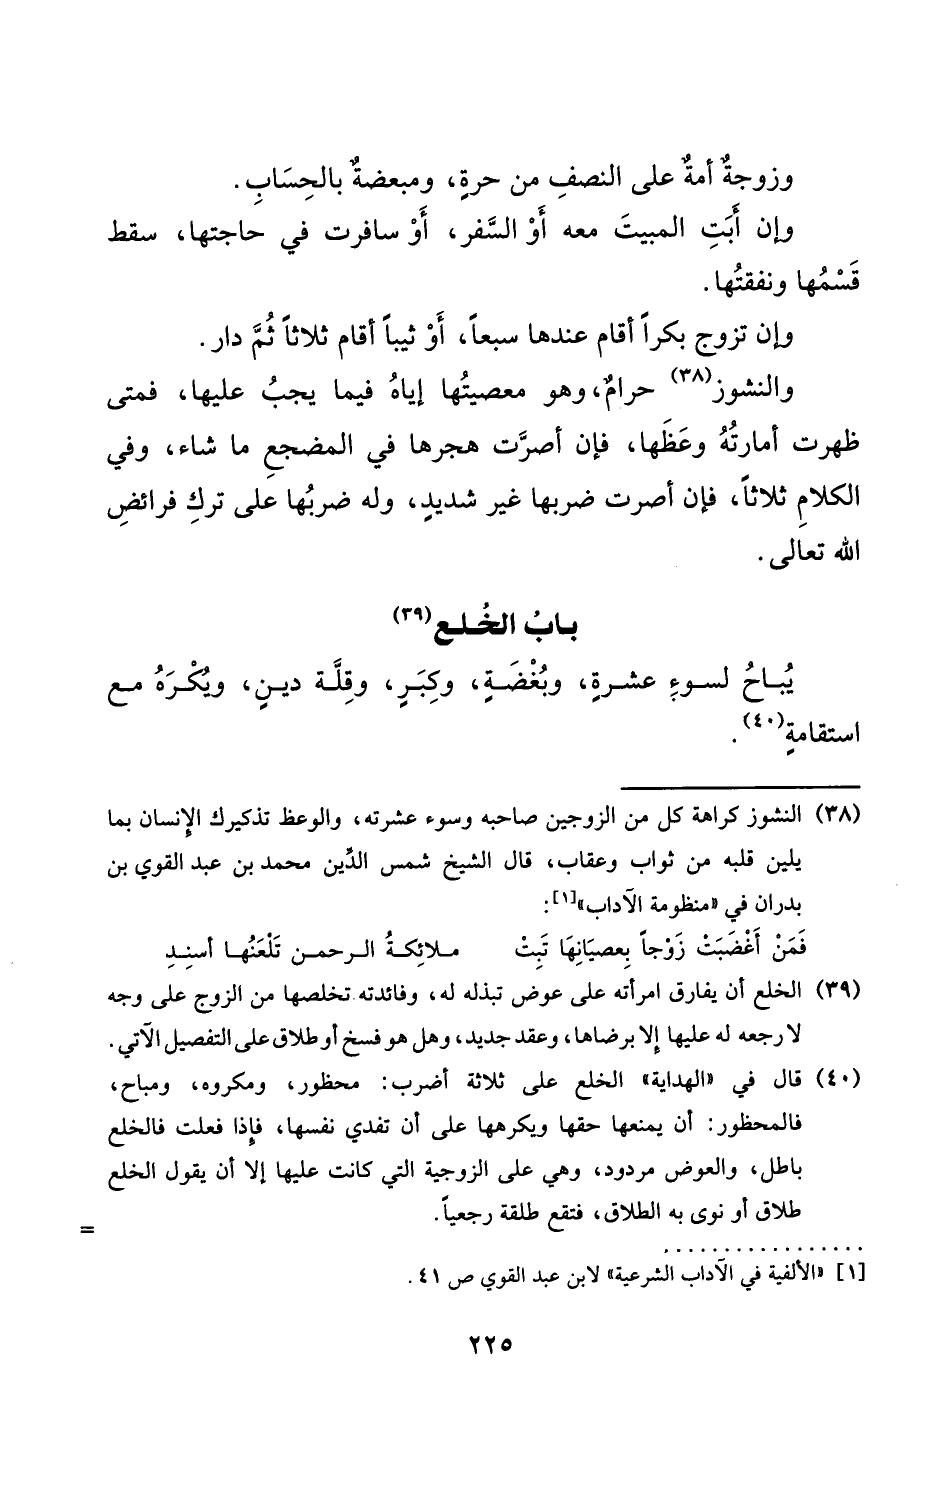 وزوجةٌ أمةٌ على النصفِ من حرةٍ، ومبعضةٌ بالحِسَابِ.
وإن أَبَتِ المبيتَ معه أَوْ السَّفر، أَوْ سافرت في حاجتها، سقط
قَسْمُها ونفقتُها.
وإن تزوج بكراً أقام عندها سبعاً، أَوْ ثيباً أقام ثلاثاً ثُمَّ دار.
والنشوز(٣٨) حرامٌ، وهو معصيتُها إياهُ فيما يجبُ عليها، فمتى
ظهرت أمارتُهُ وعَظَها، فإن أصرَّت هجرها في المضجعِ ما شاء، وفي
الكلامِ ثلاثاً، فإن أصرت ضربها غير شديدٍ، وله ضربُها على تركِ فرائضِ
الله تعالى.
بابُ الخُلع(٣٩)
يُباحُ لسوءِ عشرةٍ، وبُغْضَةٍ، وكِبَرٍ، وقِلَّة دينٍ، ويُكْرَهُ مع
استقامةٍ(٤٠).
(٣٨) النشوز كراهة كل من الزوجين صاحبه وسوء عشرته، والوعظ تذكيرك الإنسان بما
يلين قلبه من ثواب وعقاب، قال الشيخ شمس الدِّين محمد بن عبد القوي بن
بدران في «منظومة الآداب»[١]:
فَمَنْ أَغْضَبَتْ زَوْجاً بِعصيَانِهَا تَبِتْ ملائِكةُ الرحمن تَلْعَنُهَا أسنِدِ
(٣٩) الخلع أن يفارق امرأته على عوض تبذله له، وفائدته تخلصها من الزوج على وجه
لا رجعه له عليها إلا برضاها، وعقد جديد، وهل هو فسخ أو طلاق على التفصيل الآتي.
(٤٠) قال في «الهداية» الخلع على ثلاثة أضرب: محظور، ومكروه، ومباح،
فالمحظور: أن يمنعها حقها ويكرهها على أن تفدي نفسها، فإذا فعلت فالخلع
باطل، والعوض مردود، وهي على الزوجية التي كانت عليها إلا أن يقول الخلع
طلاق أو نوى به الطلاق، فتقع طلقة رجعياً.
=
[١] «الألفية في الآداب الشرعية» لابن عبد القوي ص ٤١.
٢٢٥